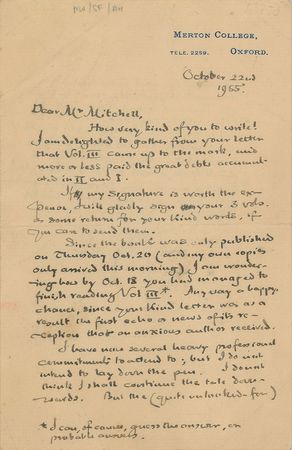 MERTON COLLEGE,
TELE. 2259. OXFORD.
October 22nd
1955.
Dear Mr Mitchell,
How very kind of you to write!
I am delighted to gather from your letter
that Vol. III came up to the mark, and
more or less paid the great debts accumul-
ated in II and I.
If my signature is worth the ex-
pense, I will gladly sign your 3 vols.
as some return for your kind words, if
you can to send them.
Since the book was only published
on Thursday Oct. 20 (and my own copies
only arrived this morning) I am wonder-
ing how by Oct. 18 you had managed to
finish reading Vol III*. Any way a happy
chance, since your kind letter was as a
result the first echo or news of its re-
ception that an anxious author received.
I have now several heavy professional
commitments to attend to; but I do not
intend to lay down the pen. I do not
think I shall continue the tale down-
wards. But the (quite unlooked-for)
* I can, of course, guess the answer, or
probable answers.